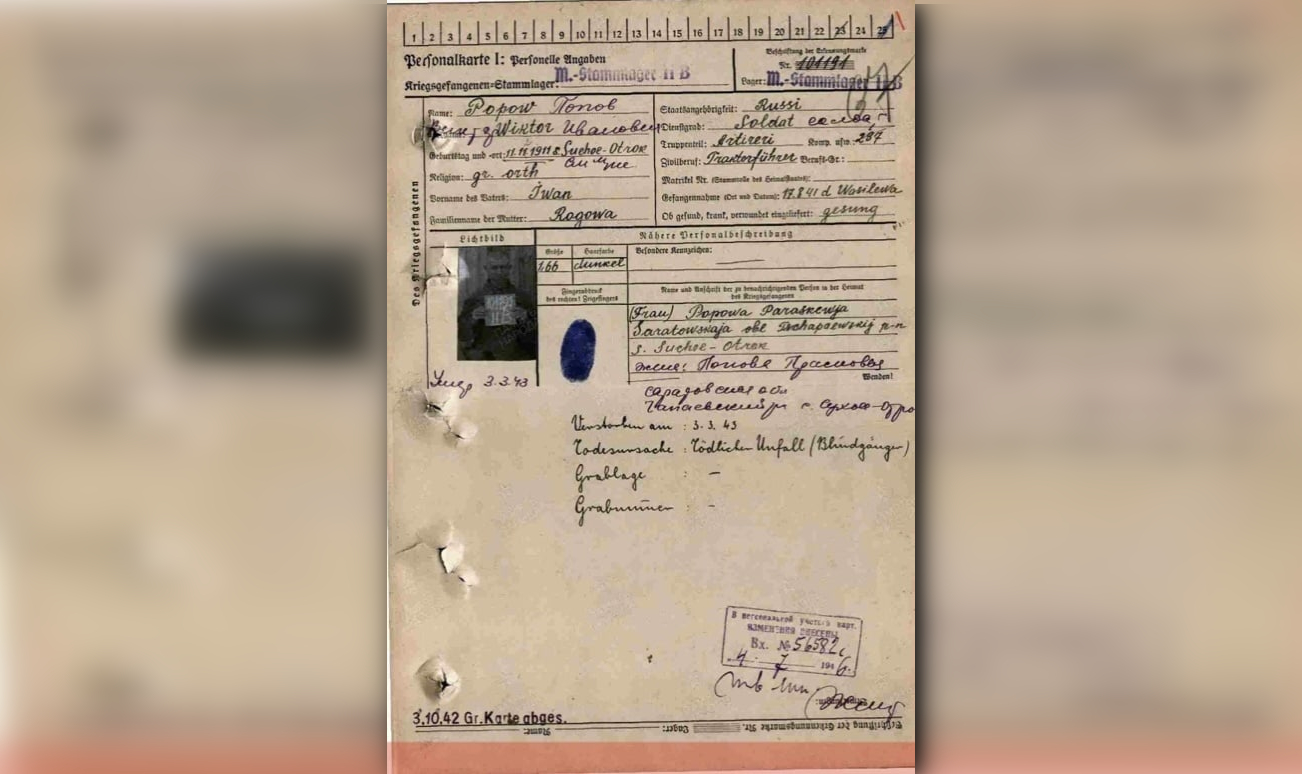 1 2 3 4 5 6 7 8 9 10 11 12 13 14 15 16 17 18 19 20 21 22 23 24 25
Personalkarte I: Personelle Angaben
Kriegsgefangenen-Stammlager: M.-Stammlager II B
Beschriftung der Erkennungsmarke
Nr. 101191
Lager: M.-Stammlager II B
Des Kriegsgefangenen
Name: Popow Попов
Wiktor Иванович
Geburtstag und -ort: 11.11.1911 Suchoe-Otrok
Religion: gr. orth
Vorname des Vaters: Iwan
Familienname der Mutter: Rogowa
Staatsangehörigkeit: Russi
Dienstgrad: Soldat солдат
Truppenteil: Artireri Komp. usw.: 297
Zivilberuf: Traktorführer Berufs-Gr.:
Matrikel Nr. (Stammrolle des Heimatstaates):
Gefangennahme (Ort und Datum): 17.8.41 d Wasilewa
Ob gesund, krank, verwundet eingeliefert: gesung
Lichtbild
Nähere Personalbeschreibung
Größe Haarfarbe Besondere Kennzeichen:
1.66 dunkel
Fingerabdruck
des rechten! Zeigefingers
Name und Anschrift der zu benachrichtigenden Person in der Heimat
des Kriegsgefangenen
(Frau) Popowa Paraskewja
Saratowskaja obl Tschapaewskij р-п
s. Suchoe-Otrok
жена: Попова Прасковья
Wenden!
Умер 3.3.43
Саратовская обл
Чапаевский р с. Сухой-Отро
Verstorben am : 3.3.43
Todesursache : Tödlicher Unfall (Blindgänger)
Grablage : –
Grabnummer : –
В персональной учетной карт.
ИЗМЕНЕНИЯ ВНЕСЕНЫ
Вх. № 56582
4. 7 1946.
3.10.42 Gr.Karte abges.
Beschriftung der Erkennungsmarke Nr. Lager: Name: